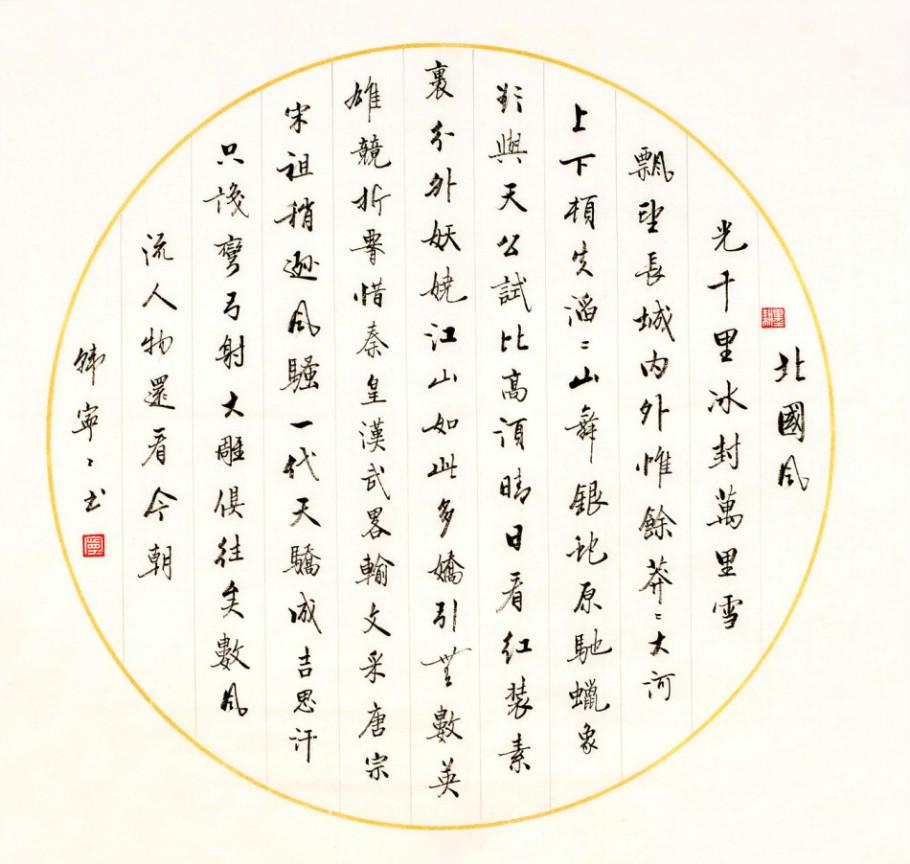 北國風
光千里冰封萬里雪
飄望長城內外惟餘莽〻大河
上下頓失滔〻山舞銀蛇原馳蠟象
欲與天公試比高須晴日看紅裝素
裹分外妖嬈江山如此多嬌引無數英
雄競折腰惜秦皇漢武畧輸文采唐宗
宋祖稍遜風騷一代天驕成吉思汗
只識彎弓射大雕俱往矣數風
流人物還看今朝
韓寧〻书
寧